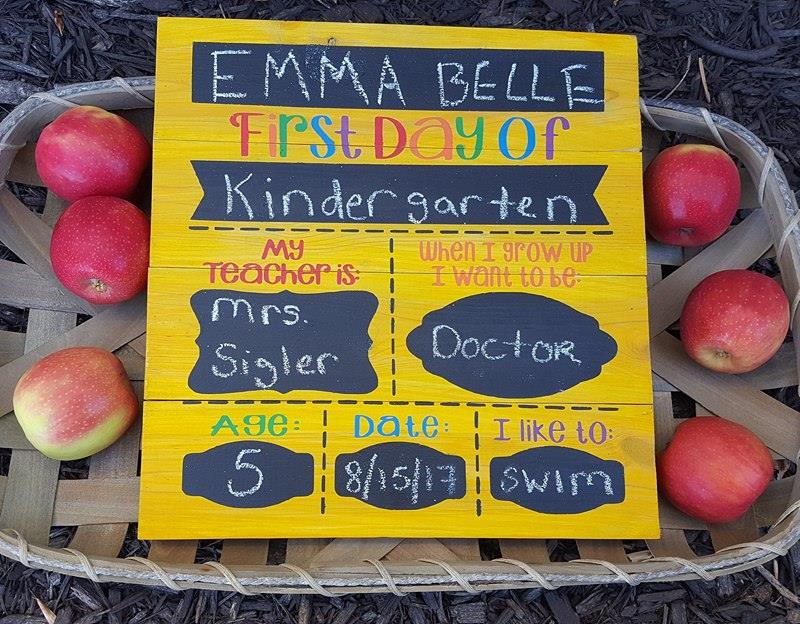 EMMA BELLE
First Day Of
Kindergarten
My
Teacher is:
Mrs.
Sigler
When I grow up
I want to be:
Doctor
Age:
5
Date:
8/15/17
I like to:
swim